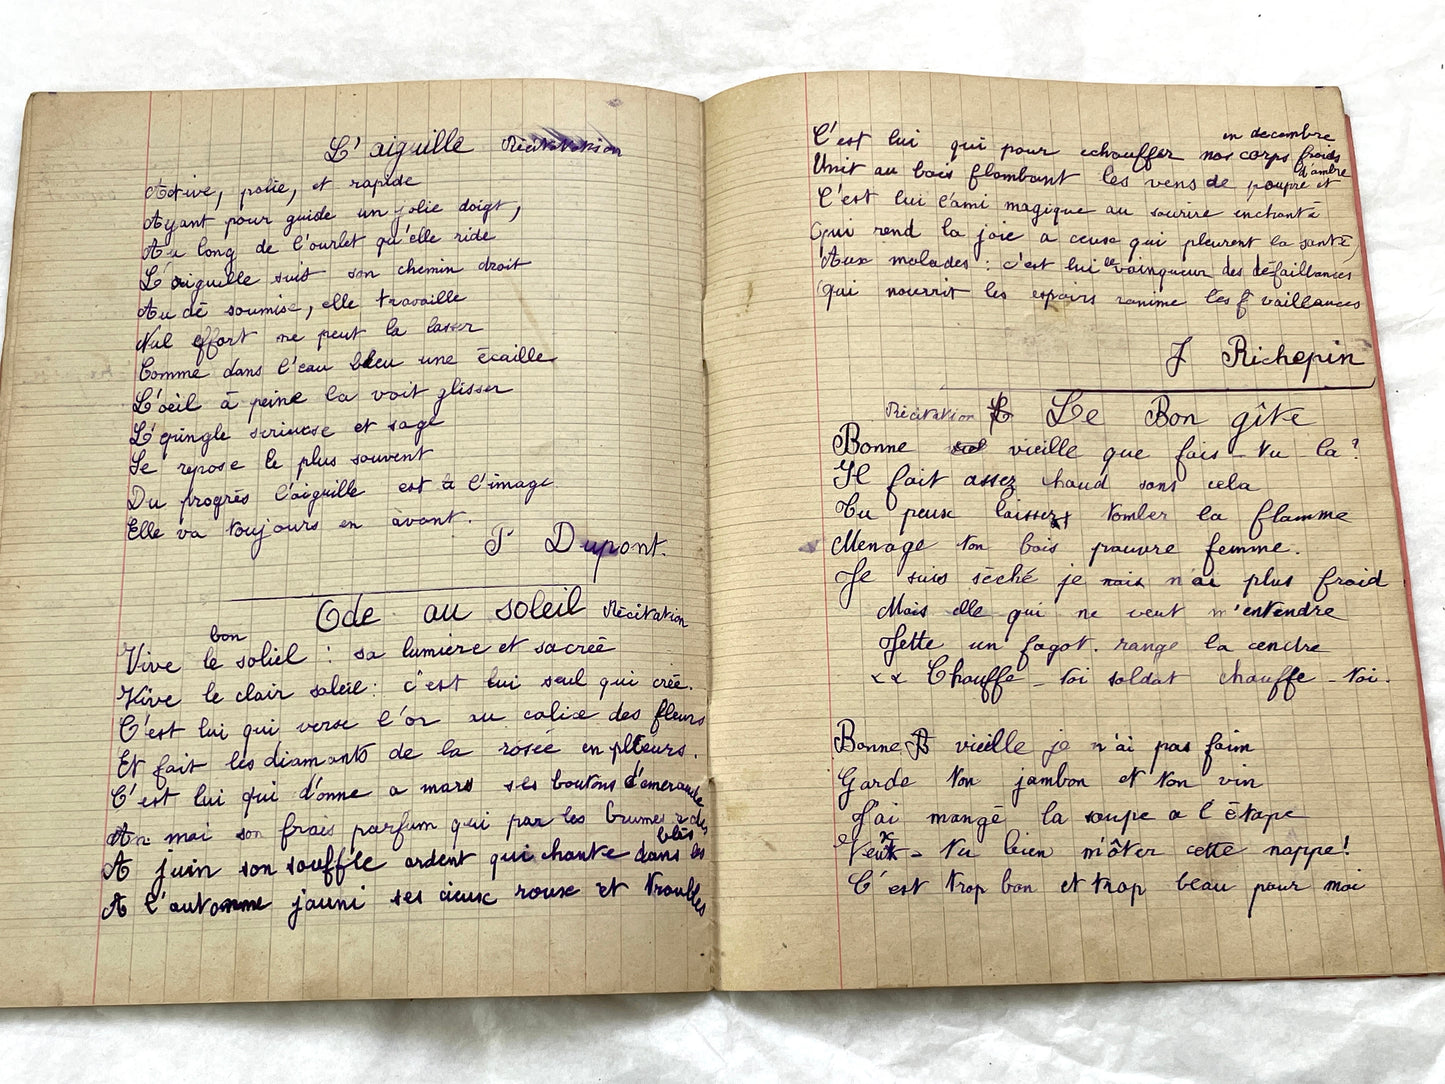 L'aiguille Récitation
Active, polie, et rapide
Ayant pour guide un jolie doigt,
Au long de l'ourlet qu'elle ride
L'aiguille suit son chemin droit
Au dé soumise, elle travaille
Nul effort ne peut la lasser
Comme dans l'eau bleu une écaille
L'oeil à peine la voit glisser
L'épingle serieuse et sage
Se repose le plus souvent
Du progrès l'aiguille est à l'image
Elle va toujours en avant.
P Dupont.
Ode au soleil Récitation
bon
Vive le soliel : sa lumière et sacréé
Vive le clair soleil : c'est lui seul qui créé.
C'est lui qui verse l'or au calice des fleurs
Et fait les diamants de la rosée en pleurs.
C'est lui qui d'onne a mars ses boutons d'emeraude
An mai son frais parfum qui par les brumes rodes
blés
A juin son souffle ardent qui chante dans les
A l'automne jauni ses cieux roux et troubles
en decembre
C'est lui qui pour echauffer nos corps froids
d'ambre
Unit au bois flambant les vens de poupre et
C'est lui l'ami magique au sourire enchanté
Qui rend la joie a ceux qui pleurent la santé,
Aux malades : c'est lui le vainqueur des défaillances
Qui nourrit les espoirs ranime les vaillances
J Richepin
Récitation Le Bon gîte
Bonne vieille que fais-tu la?
Il fait assez chaud sans cela
Tu peux laisser tomber la flamme
Menage ton bois pauvre femme.
Je suis séché je n'ai plus froid
Mais elle qui ne veut m'entendre
Jette un fagot. range la cendre
Chauffe-toi soldat chauffe-toi.
Bonne vieille je n'ai pas faim
Garde ton jambon et ton vin
J'ai mangé la soupe a l'étape
Veux-tu bien m'ôter cette nappe!
C'est trop bon et trop beau pour moi